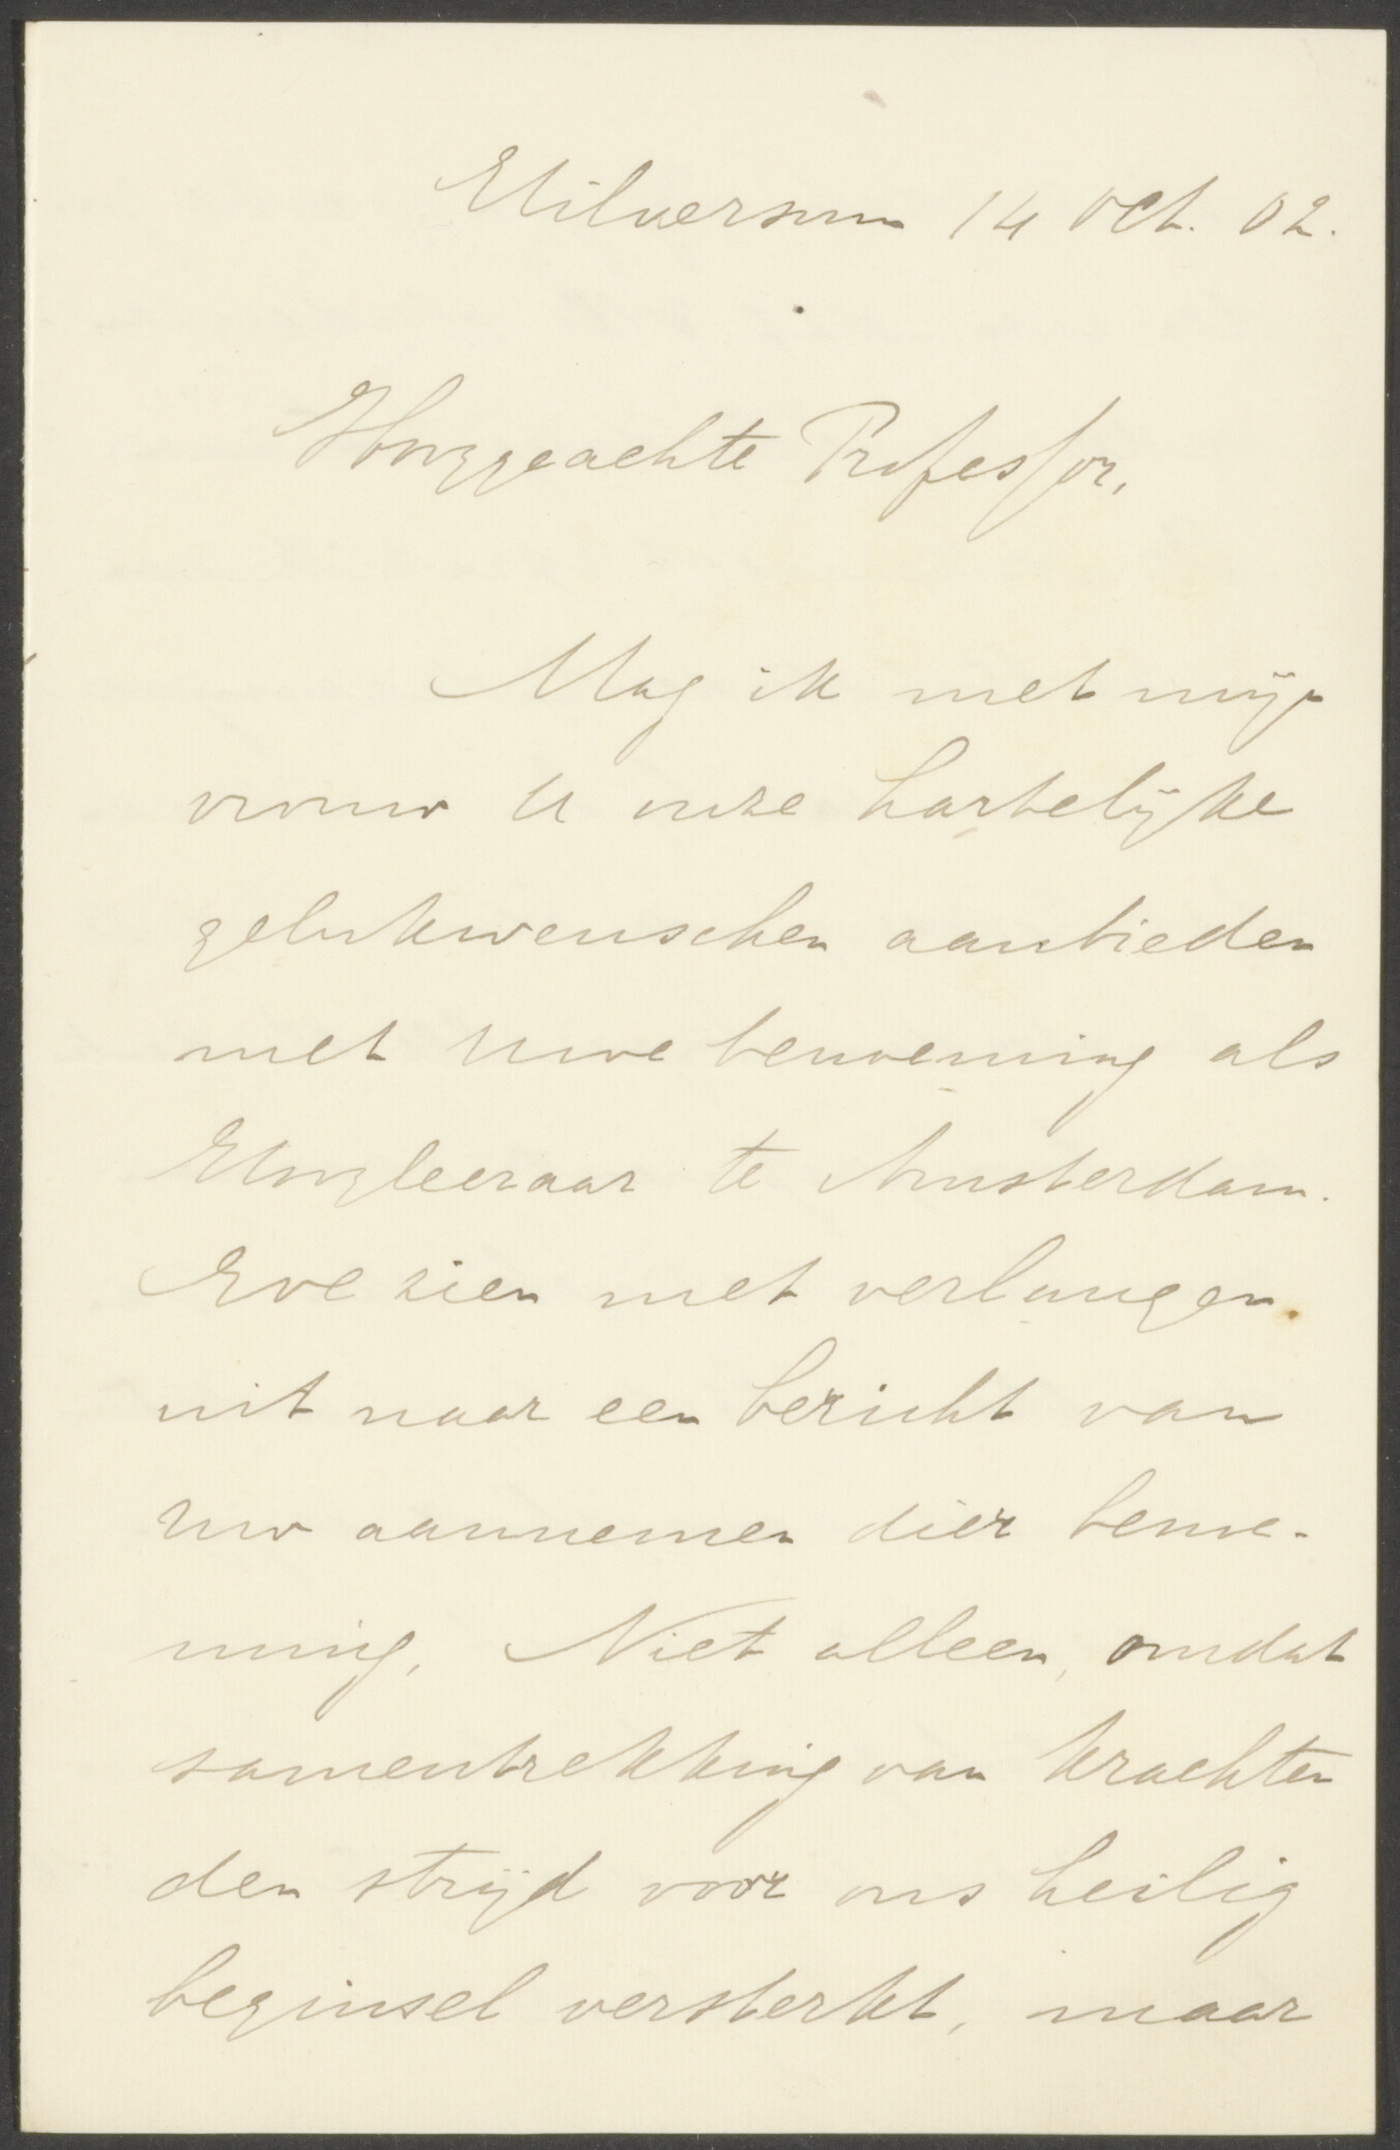 Hilversum 14 Oct. 02.
Hooggeachte Professor,
Mag ik met mijn
vrouw U onze hartelijke
gelukwenschen aanbieden
met Uwe benoeming als
Hoogleeraar te Amsterdam.
We zien met verlangen
uit naar een bericht van
Uw aannemen dier benoe-
ming. Niet alleen, omdat
samentrekking van krachten
den strijd voor ons heilig
beginsel versterkt, maar